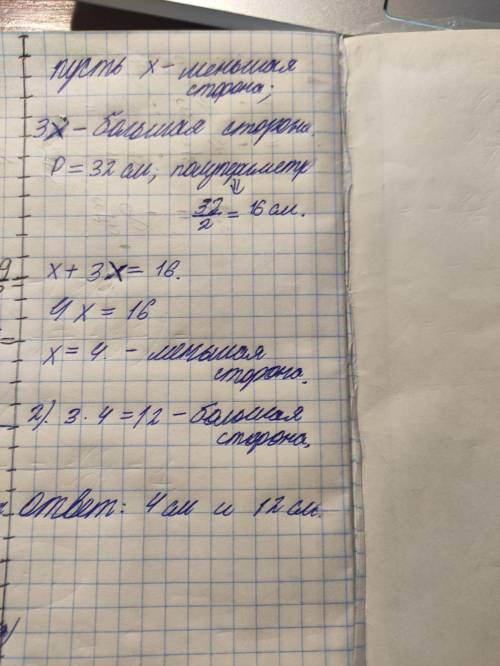 пусть x - меньшая
сторона;
3x - большая сторона.
P = 32 см; полупериметр
⇓
32/2 = 16 см.
x + 3x = 16.
4x = 16
x = 4 - меньшая
сторона.
2). 3 · 4 = 12 - большая
сторона.
ответ: 4 см и 12 см.